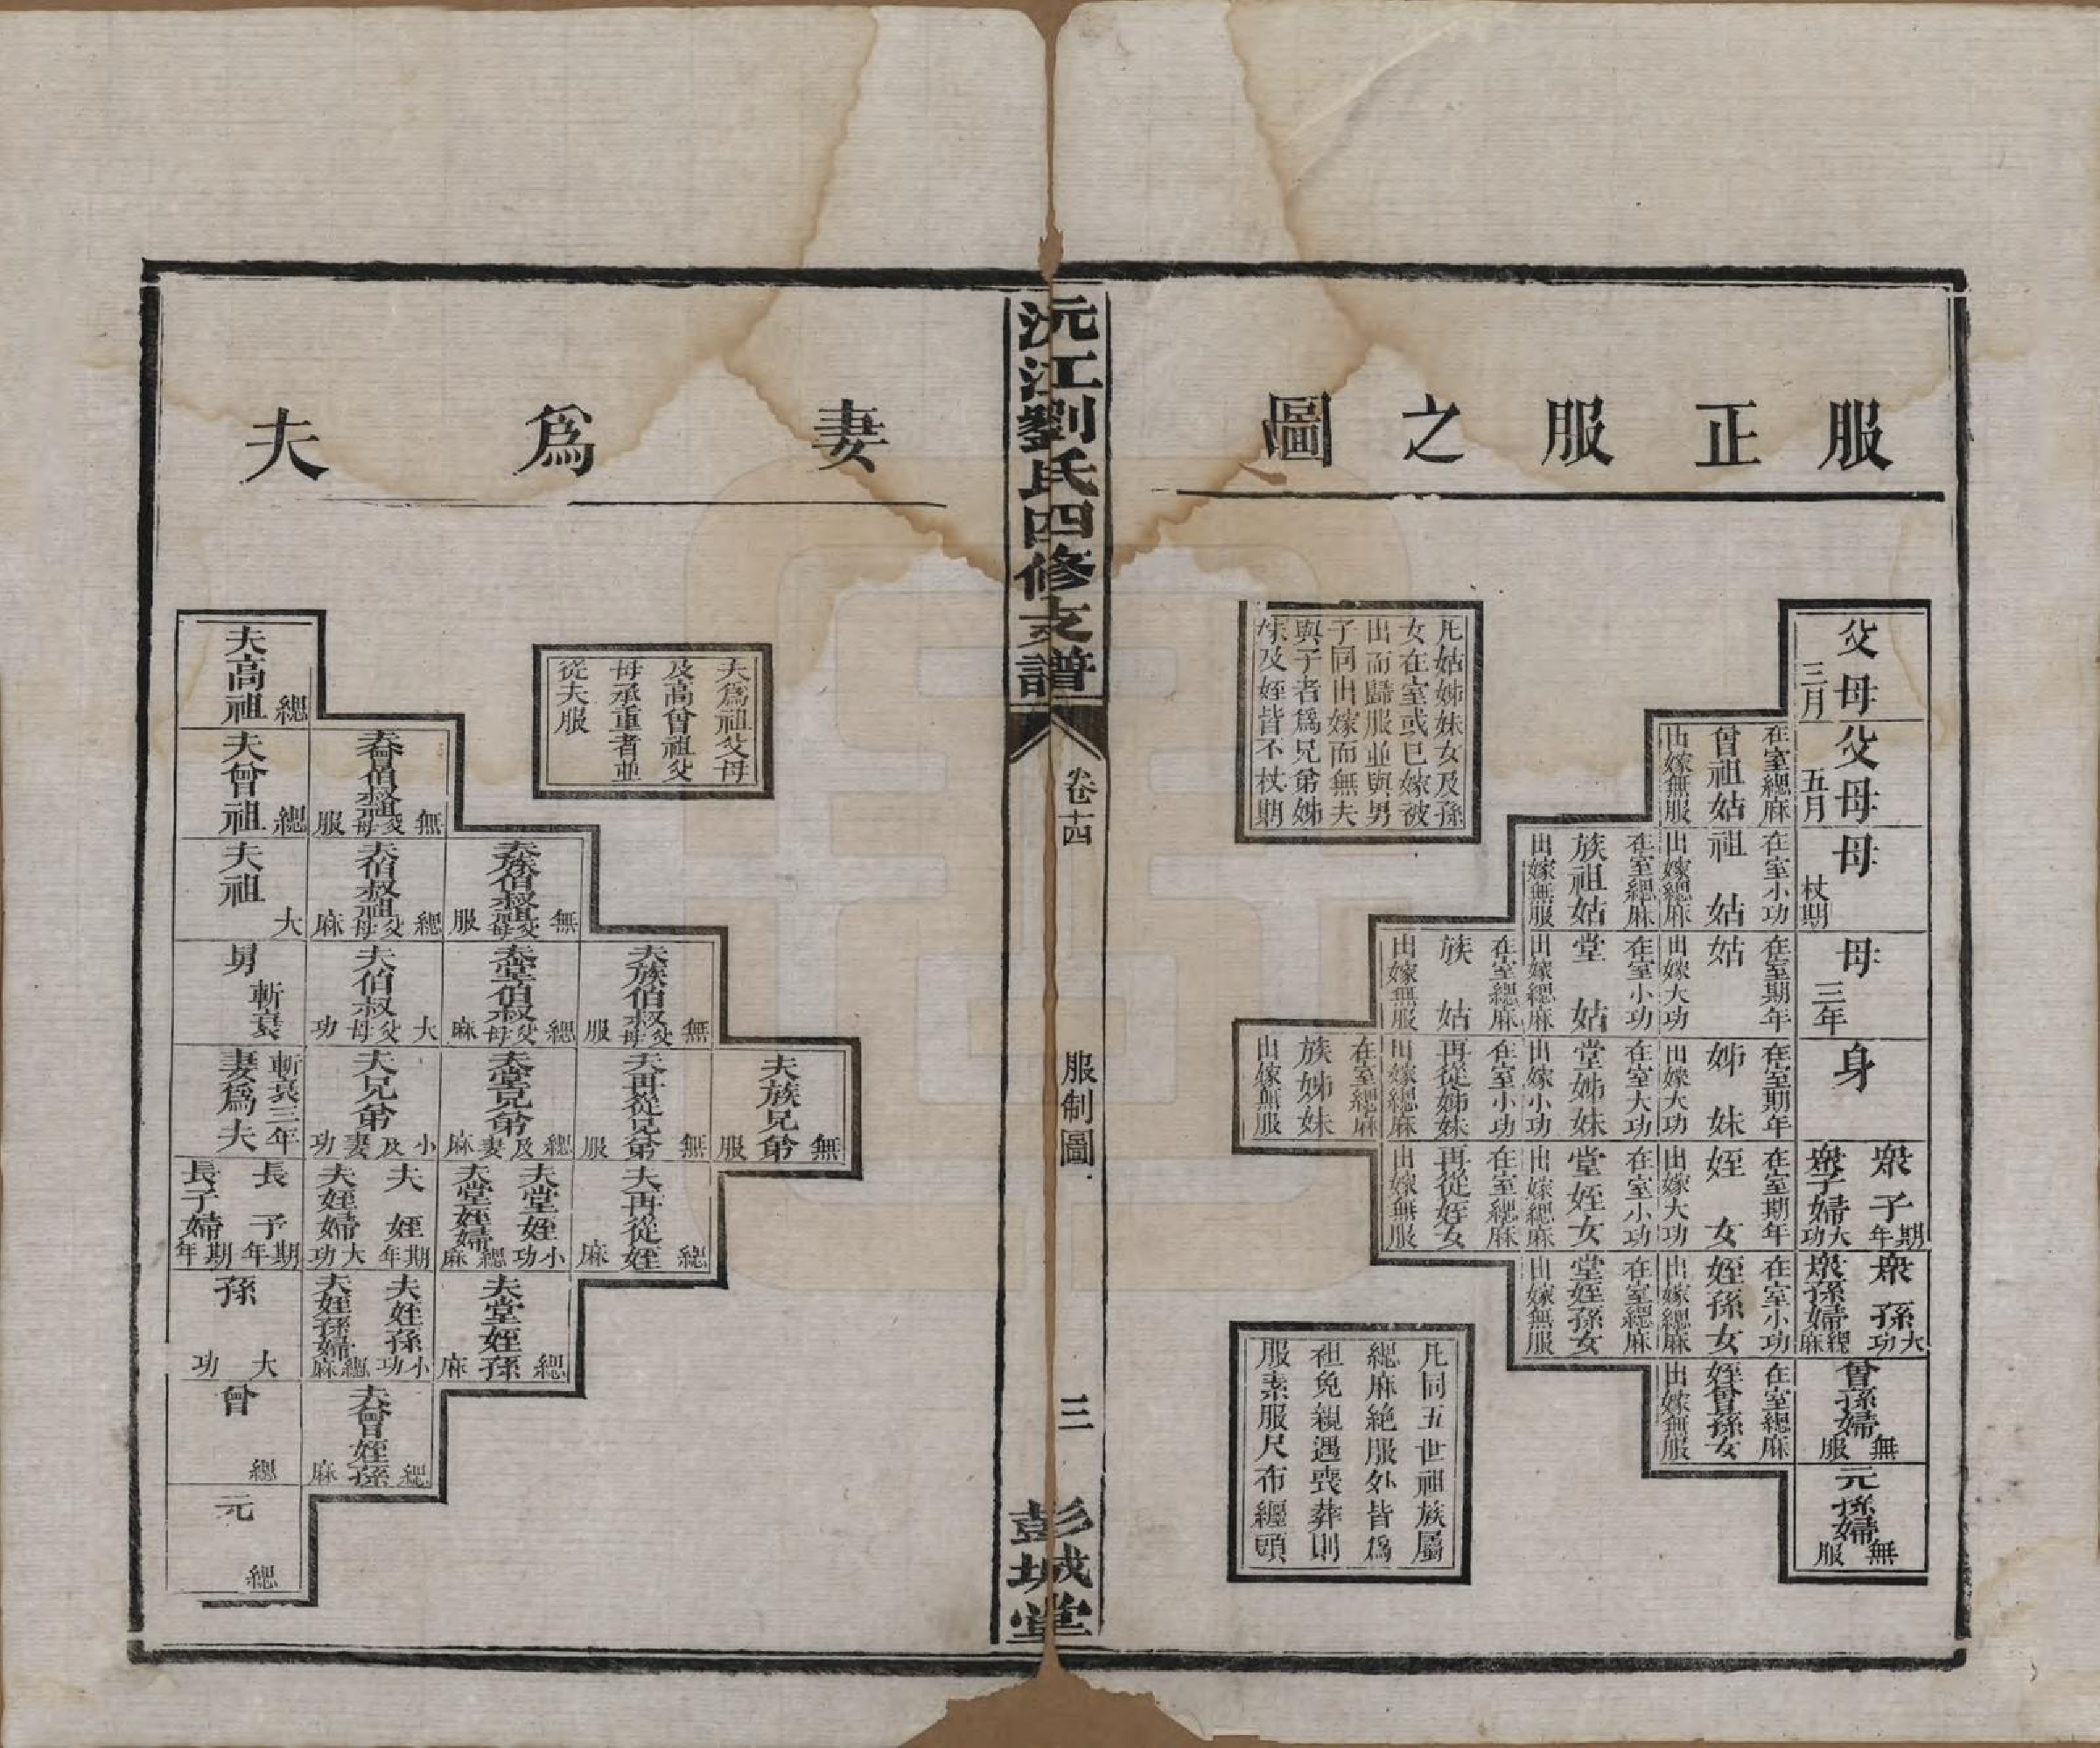 服正服之圖
父母
三月
父母
五月
母
杖期
母
三年
身
衆子
期年
衆子婦
大功
衆孫
大功
衆孫婦
緦麻
曾孫婦
無服
元孫婦
無服
在室緦麻
曾祖姑
出嫁無服
在室小功
祖姑
出嫁緦麻
在室緦麻
族祖姑
出嫁無服
在室期年
姑
出嫁大功
在室小功
堂姑
出嫁緦麻
在室緦麻
族姑
出嫁無服
在室期年
姊妹
出嫁大功
在室大功
堂姊妹
出嫁小功
在室小功
再從姊妹
出嫁緦麻
在室緦麻
族姊妹
出嫁無服
在室期年
姪女
出嫁大功
在室小功
堂姪女
出嫁緦麻
在室緦麻
再從姪女
出嫁無服
在室小功
姪孫女
出嫁緦麻
在室緦麻
堂姪孫女
出嫁無服
在室緦麻
姪曾孫女
出嫁無服
凡姑姊妹女及孫
女在室或已嫁被
出而歸服並與男
子同出嫁而無夫
與子者爲兄弟姊
妹及姪皆不杖期
凡同五世祖族屬
緦麻絶服外皆爲
袒免親遇喪葬則
服素服尺布纒頭
沅江劉氏四修支譜
卷十四
服制圖
三
彭城堂
妻爲夫
夫爲祖父母
及高曾祖父
母承重者並
從夫服
夫高祖
緦
夫曾祖
緦
夫曾伯叔祖父母
無服
夫祖
大
夫伯叔祖父母
緦麻
夫族伯叔祖父母
無服
舅
斬衰
夫伯叔父母
大功
夫堂伯叔父母
緦麻
夫族伯叔父母
無服
斬衰三年
妻爲夫
夫兄弟及妻
小功
夫堂兄弟及妻
緦麻
夫再從兄弟
無服
夫族兄弟
無服
長子
期年
長子婦
期年
夫姪
期年
夫姪婦
大功
夫堂姪
小功
夫堂姪婦
緦麻
夫再從姪
緦麻
孫
大功
夫姪孫
小功
夫姪孫婦
緦麻
夫堂姪孫
緦麻
曾
緦
夫曾姪孫
緦麻
元
緦